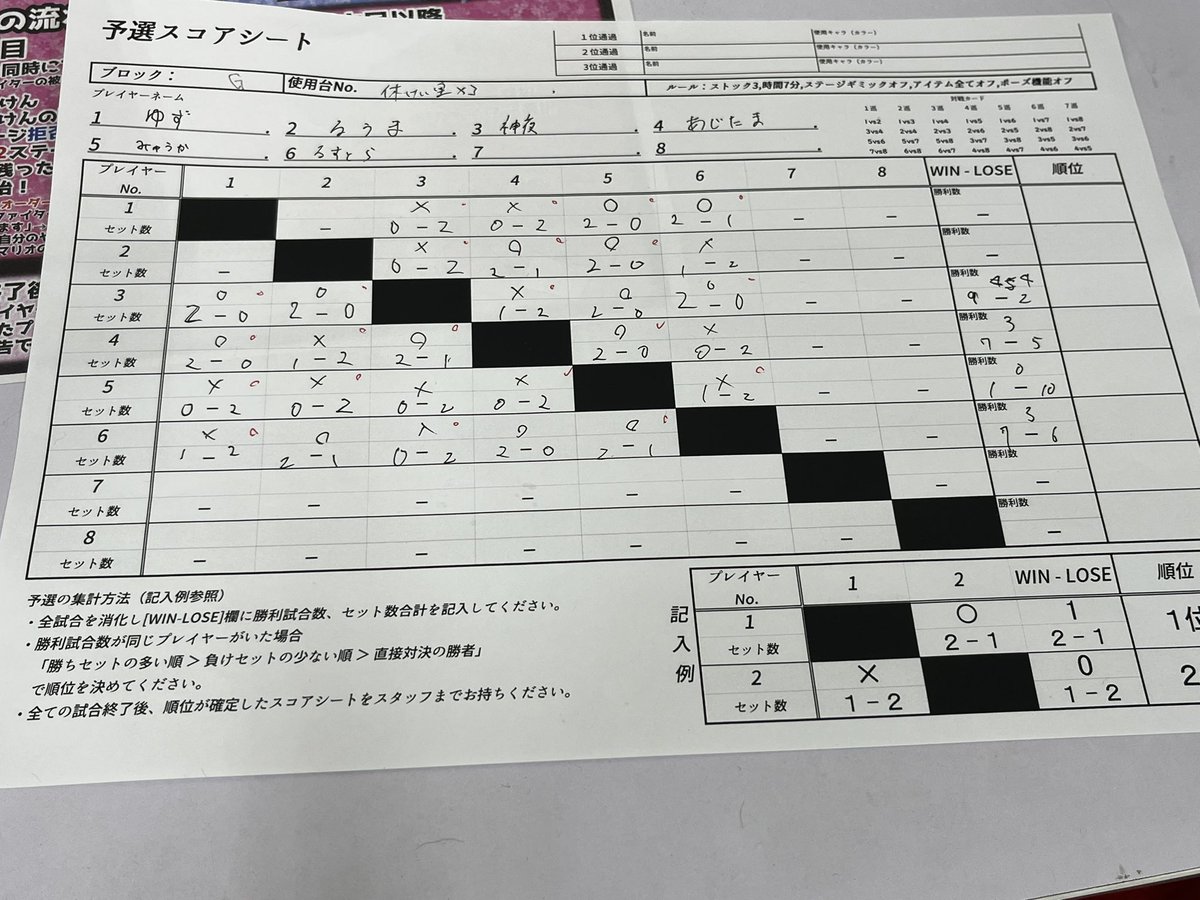 の流
大同以降
目
同時に
けん
けんの
ージ拒否
2ステ
残った
台！
ファイタ
ます」
自分の
マリオの
予選スコアシート
1位通過 名前 使用キャラ（カラー）
2位通過 名前 使用キャラ（カラー）
3位通過 名前 使用キャラ（カラー）
ブロック： G 使用台No. 休けい室×3
ルール：ストック3,時間7分,ステージギミックオフ,アイテム全てオフ,ポーズ機能オフ
プレイヤーネーム
1 ゆず 2 るうま 3 神夜 4 あじたま
5 みゅうか 6 るすとら 7 8
対戦カード
1巡 2巡 3巡 4巡 5巡 6巡 7巡
1vs2 1vs3 1vs4 1vs5 1vs6 1vs7 1vs8
プレイヤー No. 1 2 3 4 5 6 7 8 WIN - LOSE 順位
1 × × ○ ○ 勝利数
セット数 － 0－2 0－2 2－0 2－1 － － －
2 × ○ ○ × 勝利数
セット数 － 0－2 2－1 2－0 1－2 － － －
3 ○ ○ × ○ ○ 勝利数
セット数 2－0 2－0 1－2 2－0 2－0 － － 9－2
4 ○ × ○ ○ × 勝利数 3
セット数 2－0 1－2 2－1 2－0 0－2 － － 7－5
5 × × × × × 勝利数 0
セット数 0－2 0－2 0－2 0－2 1－2 － － 1－10
6 × ○ × ○ ○ 勝利数 3
セット数 1－2 2－1 0－2 2－0 2－1 － － 7－6
7 勝利数
セット数 － － － － － － － －
8 勝利数
セット数 － － － － － － － －
予選の集計方法（記入例参照）
・全試合を消化し[WIN-LOSE]欄に勝利試合数、セット数合計を記入してください。
・勝利試合数が同じプレイヤーがいた場合
「勝ちセットの多い順＞負けセットの少ない順＞直接対決の勝者」
で順位を決めてください。
・全ての試合終了後、順位が確定したスコアシートをスタッフまでお持ちください。
記入例
プレイヤー No. 1 2 WIN - LOSE 順位
1 ○ 1 1位
セット数 2－1 2－1
2 × 0 2
セット数 1－2 1－2